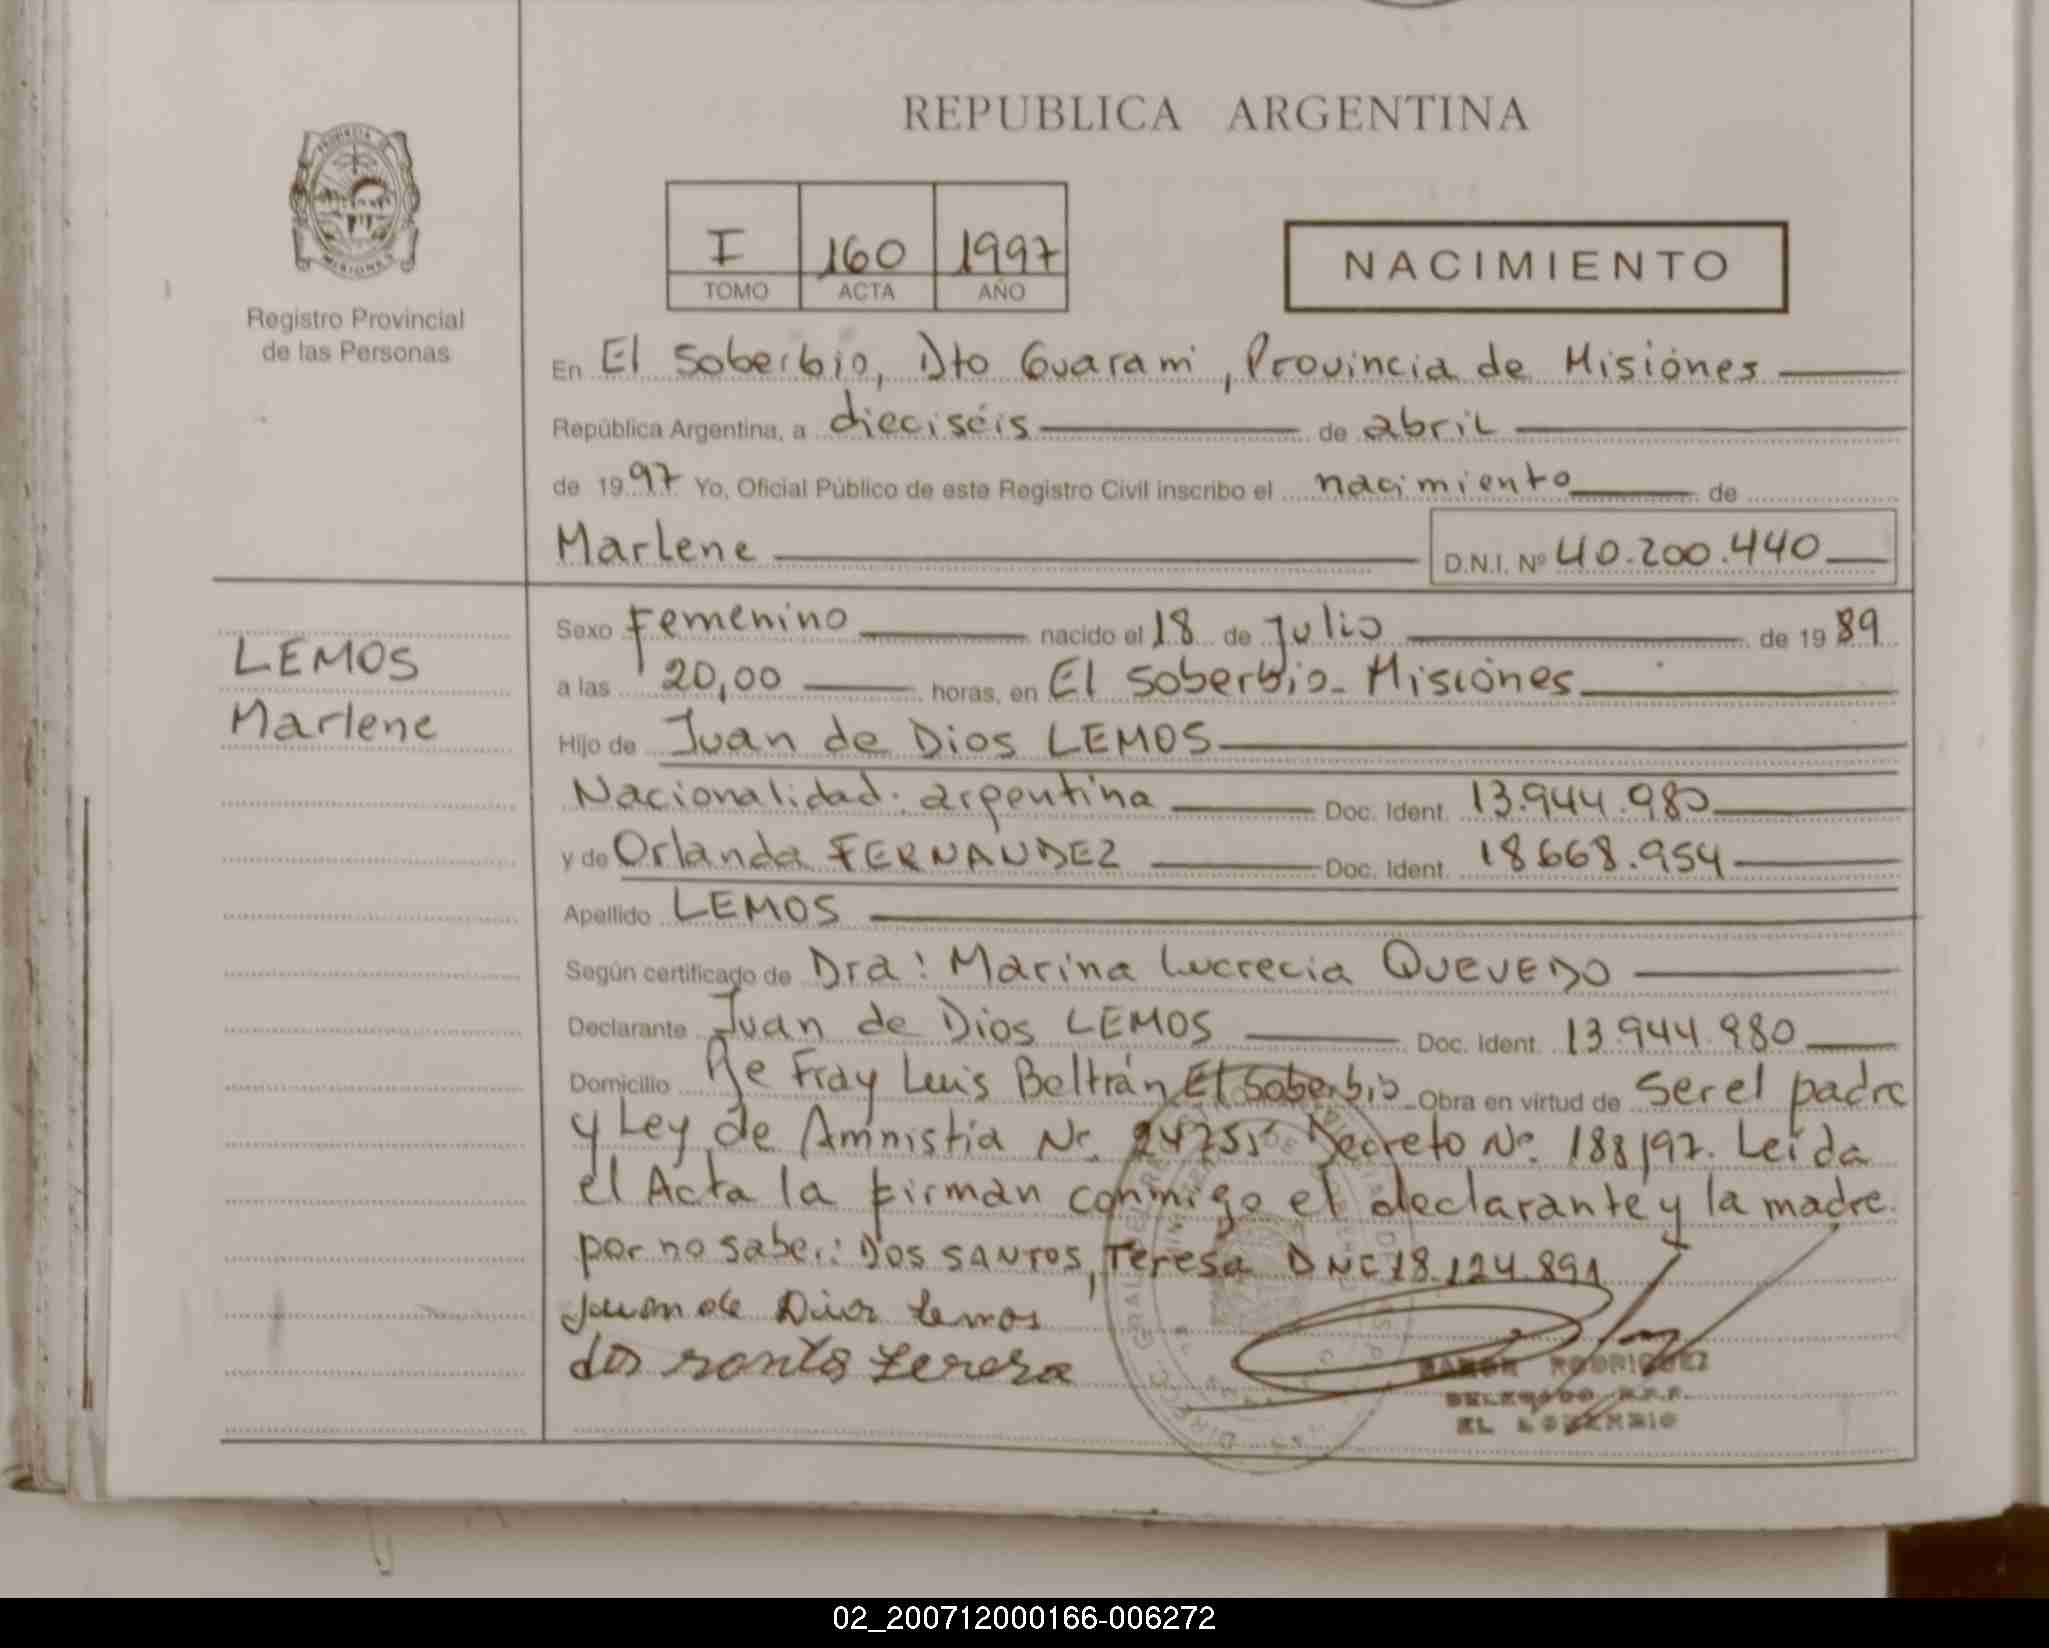 REPUBLICA ARGENTINA
PROVINCIA DE
MISIONES
Registro Provincial
de las Personas
I 160 1997
TOMO ACTA AÑO
NACIMIENTO
En El Soberbio, Dto Guarani, Provincia de Misiones
República Argentina, a dieciséis de abril
de 1997 Yo, Oficial Público de este Registro Civil inscribo el nacimiento de
Marlene D.N.I. Nº 40.200.440
LEMOS
Marlene
Sexo Femenino nacido el 18 de Julio de 1989
a las 20,00 horas, en El Soberbio - Misiones
Hijo de Juan de Dios LEMOS
Nacionalidad. argentina Doc. Ident. 13.944.980
y de Orlanda FERNANDEZ Doc. Ident. 18668.954
Apellido LEMOS
Según certificado de Dra: Marina Lucrecia QUEVEDO
Declarante Juan de Dios LEMOS Doc. Ident. 13.944.980
Domicilio Fray Luis Beltrán El Soberbio Obra en virtud de Ser el padre
y Ley de Amnistia Nº 24755 Decreto Nº 188/97. Leída
el Acta la firman conmigo el declarante y la madre
por no saber: DOS SANTOS, Teresa 18.124.891
Juan de Dios Lemos
dos santos teresa
RAMON RODRIGUEZ
DELEGADO R.P.P.
EL SOBERBIO
02_200712000166-006272